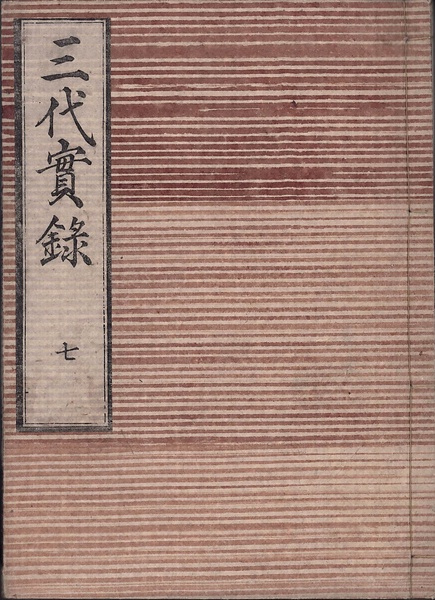 三代實錄
七